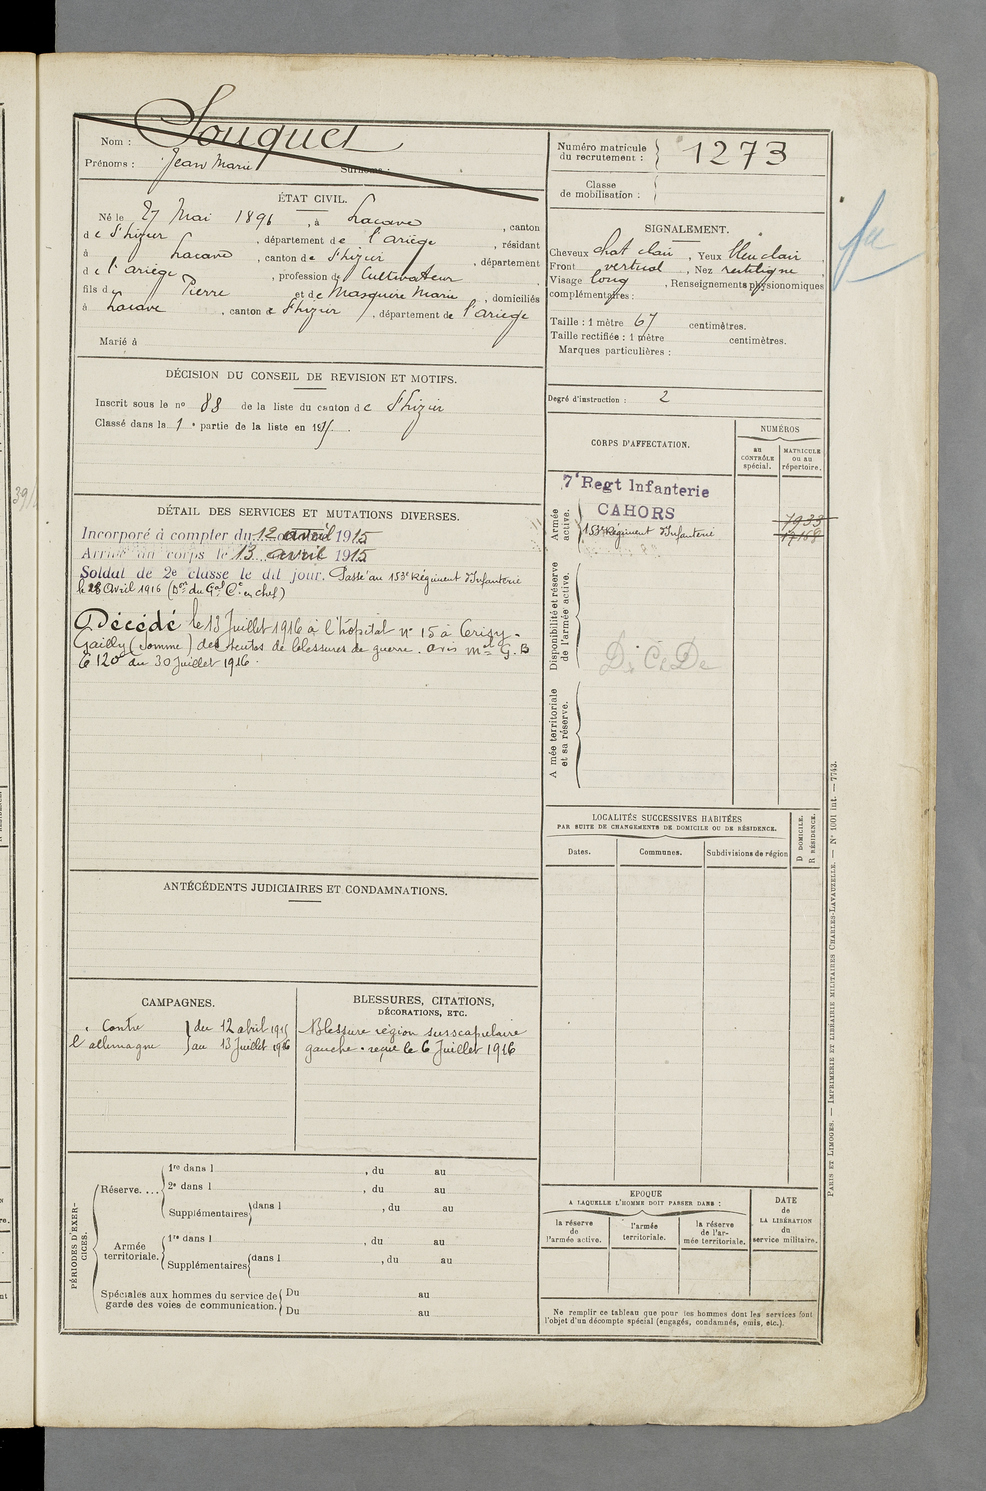 Nom : Souquet
Prénoms : Jean Marie Surnoms :
ÉTAT CIVIL.
Né le 27 Mai 1896, à Lacave, canton
de St Lizier, département de l'Ariège, résidant
à Lacave, canton de St Lizier, département
de l'Ariège, profession de Cultivateur,
fils de Pierre et de Masquère Marie, domiciliés
à Lacave, canton de St Lizier, département de l'Ariège
Marié à
DÉCISION DU CONSEIL DE REVISION ET MOTIFS.
Inscrit sous le no 88 de la liste du canton de St Lizier
Classé dans la 1e partie de la liste en 1915.
DÉTAIL DES SERVICES ET MUTATIONS DIVERSES.
Incorporé à compter du 12 avril 1915
Arrivé au corps le 13 avril 1915
Soldat de 2e classe le dit jour. Passé au 153e Régiment d'Infanterie
le 28 Avril 1916 (Don du Gal Ct en chef)
Décédé le 13 Juillet 1916 à l'hôpital no 15 à Cerisy-
Gailly (Somme) des suites de blessures de guerre. Avis mel G.B
C 120 du 30 Juillet 1916.
ANTÉCÉDENTS JUDICIAIRES ET CONDAMNATIONS.
CAMPAGNES.
Contre } du 12 abril 1915
l'allemagne } au 13 Juillet 1916
BLESSURES, CITATIONS,
DÉCORATIONS, ETC.
Blessure région susscapulaire
gauche. reçue le 6 Juillet 1916
PÉRIODES D'EXER-
CICES.
Réserve....
1re dans l , du au
2e dans l , du au
Supplémentaires dans l , du au
Armée
territoriale.
1re dans l , du au
Supplémentaires dans l , du au
Spéciales aux hommes du service de
garde des voies de communication.
Du au
Du au
Numéro matricule
du recrutement : 1273
Classe
de mobilisation :
SIGNALEMENT.
Cheveux chat clair, Yeux bleu clair,
Front vertical, Nez rectiligne,
Visage long, Renseignements physionomiques
complémentaires :
Taille : 1 mètre 67 centimètres.
Taille rectifiée : 1 mètre centimètres.
Marques particulières :
Degré d'instruction : 2
CORPS D'AFFECTATION.
NUMÉROS
au
CONTRÔLE
spécial.
MATRICULE
ou au
répertoire.
Armée
active.
7e Regt Infanterie
CAHORS
7933
153e Régiment d'Infanterie 17168
Disponibilité et réserve
de l'armée active.
DéCéDé
A mée territoriale
et sa réserve.
LOCALITÉS SUCCESSIVES HABITÉES
PAR SUITE DE CHANGEMENTS DE DOMICILE OU DE RÉSIDENCE.
Dates. Communes. Subdivisions de région
D DOMICILE.
R RÉSIDENCE.
EPOQUE
A LAQUELLE L'HOMME DOIT PASSER DANS :
la réserve
de
l'armée active.
l'armée
territoriale.
la réserve
de l'ar-
mée territoriale.
DATE
de
LA LIBÉRATION
du
service militaire.
Ne remplir ce tableau que pour les hommes dont les services font
l'objet d'un décompte spécial (engagés, condamnés, omis, etc.).
PARIS ET LIMOGES. — IMPRIMERIE ET LIBRAIRIE MILITAIRES CHARLES-LAVAUZELLE. — No 1001 int. — 7743.